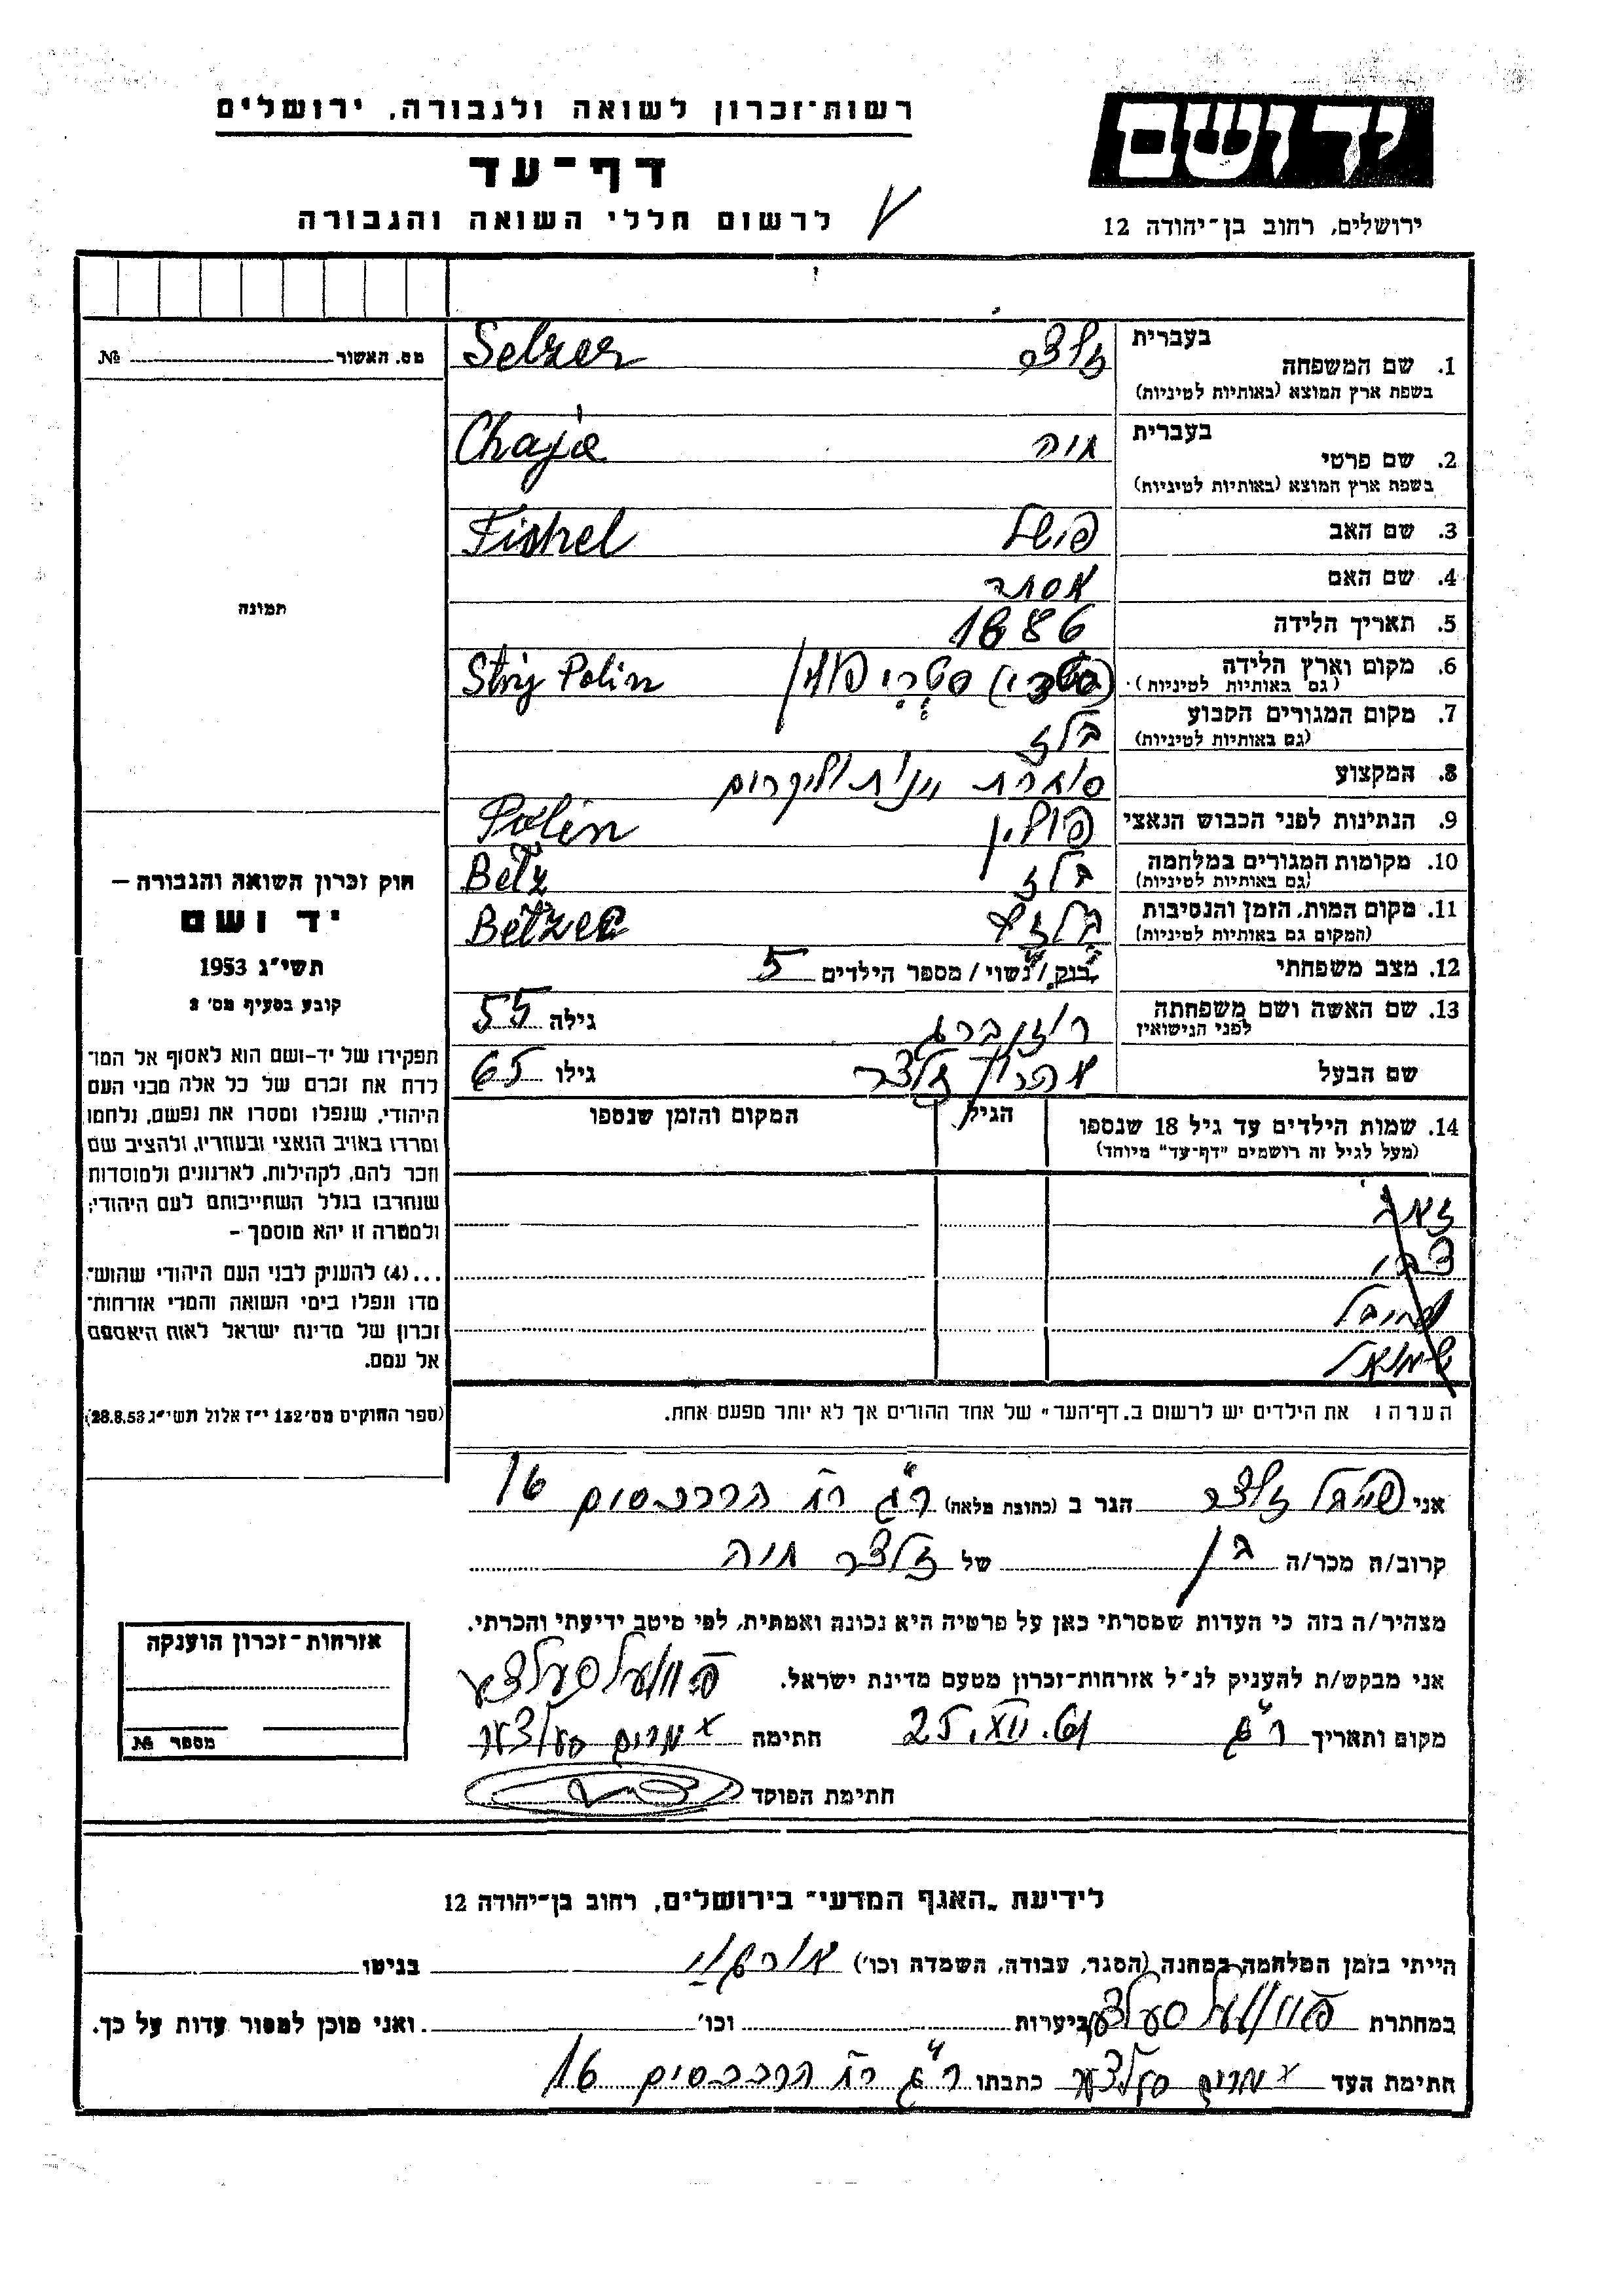 יד ושם
ירושלים, רחוב בן-יהודה 12
רשות-זכרון לשואה ולגבורה, ירושלים
דף-עד
לרשום חללי השואה והגבורה
מס. האשור № 
1. שם המשפחה בעברית זלצר Selzer
בשפת ארץ המוצא (באותיות לטיניות)
2. שם פרטי בעברית חיה Chaja
בשפת ארץ המוצא (באותיות לטיניות)
3. שם האב פישל Fishel
4. שם האם אסתר
5. תאריך הלידה 1886
6. מקום וארץ הלידה סטרי פולין Strij Polin
(גם באותיות לטיניות)
7. מקום המגורים הקבוע בלז
(גם באותיות לטיניות)
8. המקצוע סוחרת
9. הנתינות לפני הכבוש הנאצי פולין Polin
10. מקומות המגורים במלחמה בלז Belz
(גם באותיות לטיניות)
11. מקום המות, הזמן והנסיבות בלזץ Belzec
(המקום גם באותיות לטיניות)
12. מצב משפחתי רוק/נשוי/מספר הילדים 5
13. שם האשה ושם משפחתה רוזנברג גילה 55
לפני הנישואין
שם הבעל אהרון זלצר גילו 65
14. שמות הילדים עד גיל 18 שנספו הגיל המקום והזמן שנספו
(מעל לגיל זה רושמים "דף-עד" מיוחד)
זאב
צבי
שמואל
הערה: את הילדים יש לרשום ב.דף-העד" של אחד ההורים אך לא יותר מפעם אחת.
תמונה
חוק זכרון השואה והגבורה –
יד ושם
תשי"ג 1953
קובע בסעיף מס' 2
תפקידו של יד-ושם הוא לאסוף אל המו-
לדת את זכרם של כל אלה מבני העם
היהודי, שנפלו ומסרו את נפשם, נלחמו
ומרדו באויב הנאצי ובעוזריו, ולהציב שם
וזכר להם, לקהילות, לארגונים ולמוסדות
שנחרבו בגלל השתייכותם לעם היהודי;
ולמטרה זו יהא מוסמך –
...(4) להעניק לבני העם היהודי שהוש-
מדו ונפלו בימי השואה והמרי אזרחות-
זכרון של מדינת ישראל לאות היאספם
אל עמם.
(ספר החוקים מס' 132 י"ז אלול תשי"ג 28.8.53)
אני פייבל זלצר הגר ב (כתובת מלאה) ר"ג רח 16
קרוב/ה מכר/ה בן של זלצר חיה
מצהיר/ה בזה כי העדות שמסרתי כאן על פרטיה היא נכונה ואמתית, לפי מיטב ידיעתי והכרתי.
אני מבקש/ת להעניק לנ"ל אזרחות-זכרון מטעם מדינת ישראל.
מקום ותאריך ר"ג 25. חתימה
חתימת הפוקד
אזרחות-זכרון הוענקה
מספר №
לידיעת "האגף המדעי" בירושלים, רחוב בן-יהודה 12
הייתי בזמן המלחמה במחנה (הסגר, עבודה, השמדה וכו') בגיטו
במחתרת ביערות וכו' ואני מוכן למסור עדות על כך.
חתימת העד כתבתו ר"ג רח 16